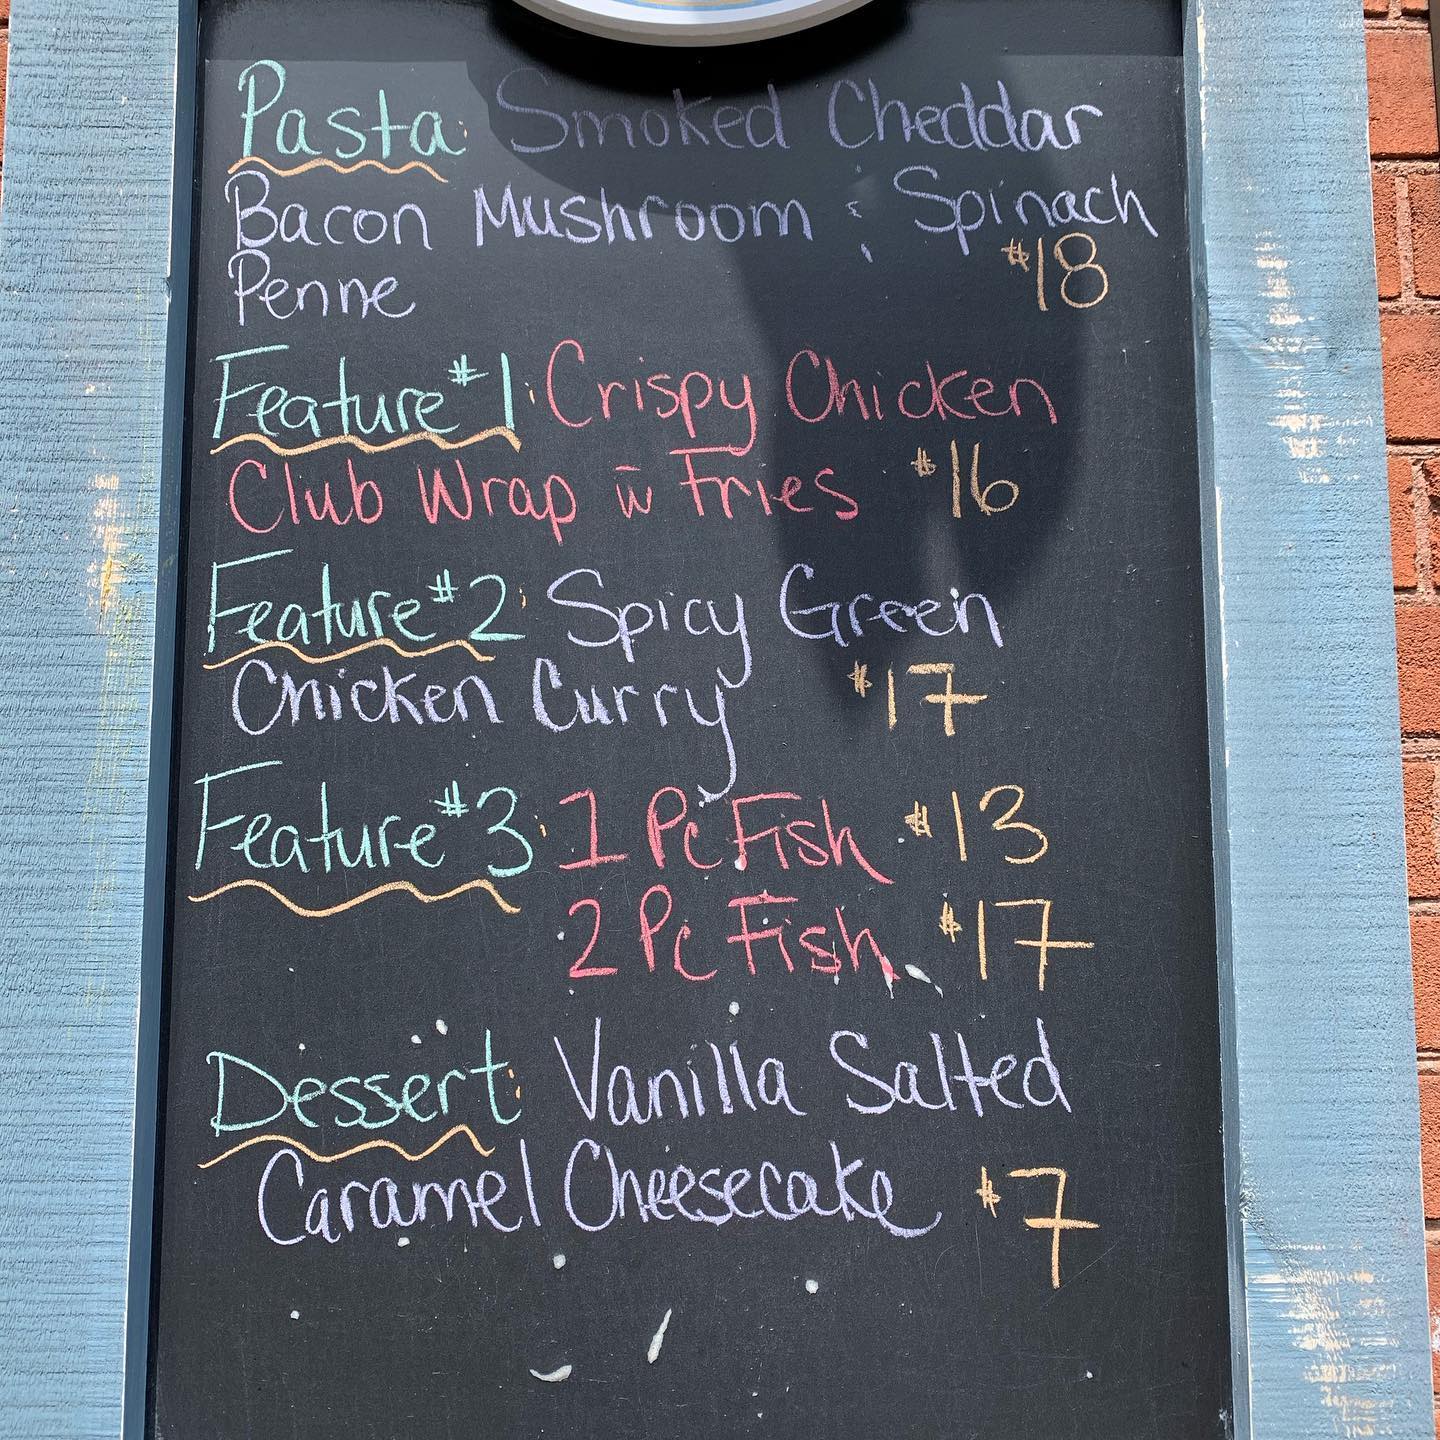 Pasta: Smoked Cheddar
Bacon Mushroom & Spinach
Penne $18
Feature #1: Crispy Chicken
Club Wrap w̄ Fries $16
Feature #2: Spicy Green
Chicken Curry $17
Feature #3: 1 Pc Fish $13
2 Pc Fish $17
Dessert: Vanilla Salted
Caramel Cheesecake $7